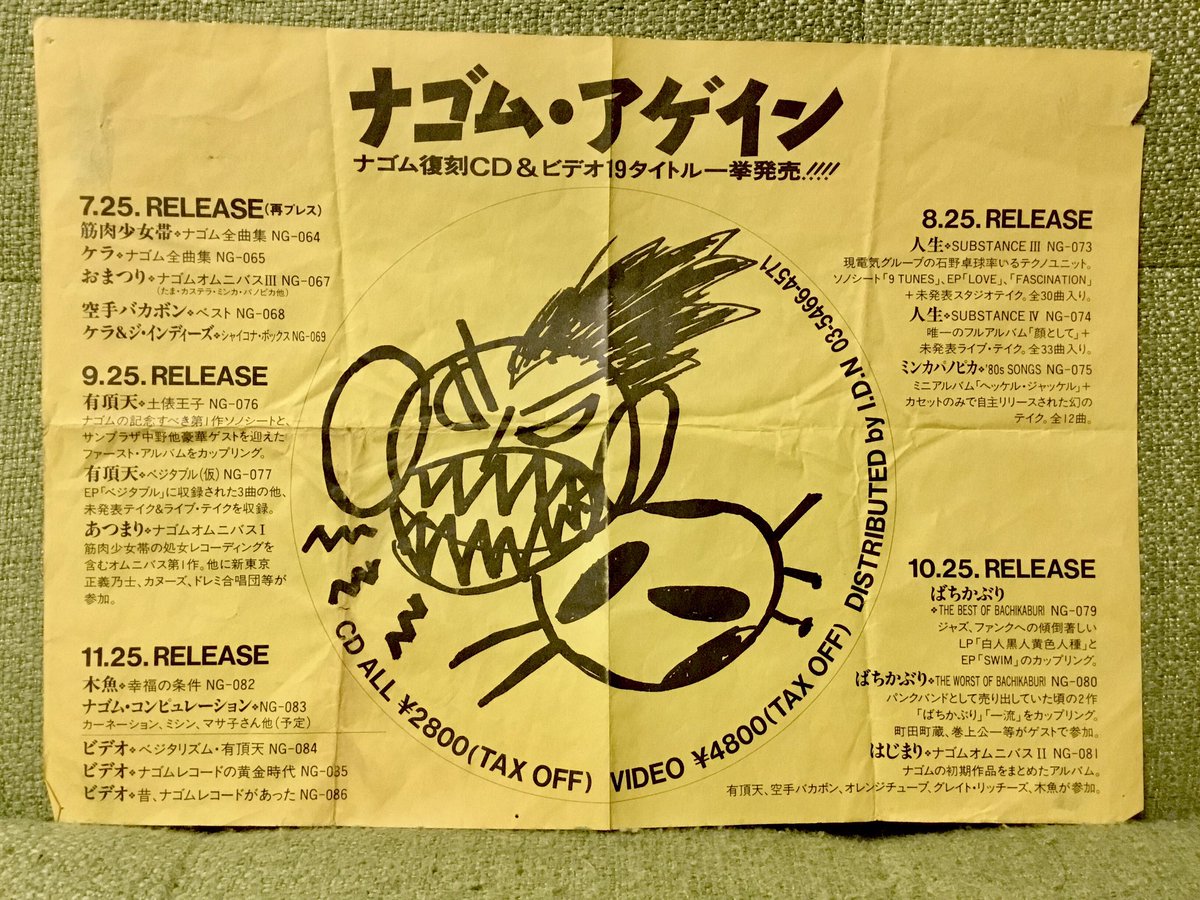 ナゴム・アゲイン
ナゴム復刻CD&ビデオ19タイトル一挙発売!!!!
7.25. RELEASE(再プレス)
筋肉少女帯❖ナゴム全曲集 NG-064
ケラ❖ナゴム全曲集 NG-065
おまつり❖ナゴムオムニバスIII NG-067
(たま・カステラ・ミンカ・パノピカ他)
空手バカボン❖ベスト NG-068
ケラ&ジ・インディーズ❖シャイコナ・ボックス NG-069
9.25. RELEASE
有頂天❖土俵王子 NG-076
ナゴムの記念すべき第1作ソノシートと、
サンプラザ中野他豪華ゲストを迎えた
ファースト・アルバムをカップリング。
有頂天❖ベジタブル(仮) NG-077
EP「ベジタブル」に収録された3曲の他、
未発表テイク&ライブ・テイクを収録。
あつまり❖ナゴムオムニバスI
筋肉少女帯の処女レコーディングを
含むオムニバス第1作。他に新東京
正義乃士、カヌーズ、ドレミ合唱団等が
参加。
11.25. RELEASE
木魚❖幸福の条件 NG-082
ナゴム・コンピュレーション❖NG-083
カーネーション、ミシン、マサ子さん他(予定)
ビデオ❖ベジタリズム・有頂天 NG-084
ビデオ❖ナゴムレコードの黄金時代 NG-085
ビデオ❖昔、ナゴムレコードがあった NG-086
8.25. RELEASE
人生❖SUBSTANCE III NG-073
現電気グループの石野卓球率いるテクノユニット。
ソノシート「9 TUNES」、EP「LOVE」、「FASCINATION」
+未発表スタジオテイク。全30曲入り。
人生❖SUBSTANCE IV NG-074
唯一のフルアルバム「顔として」+
未発表ライブ・テイク。全33曲入り。
ミンカパノピカ❖'80s SONGS NG-075
ミニアルバム「ヘッケル・ジャッケル」+
カセットのみで自主リリースされた幻の
テイク。全12曲。
10.25. RELEASE
ばちかぶり
❖THE BEST OF BACHIKABURI NG-079
ジャズ、ファンクへの傾倒著しい
LP「白人黒人黄色人種」と
EP「SWIM」のカップリング。
ばちかぶり❖THE WORST OF BACHIKABURI NG-080
パンクバンドとして売り出していた頃の2作
「ばちかぶり」「一流」をカップリング。
町田町蔵、巻上公一等がゲストで参加。
はじまり❖ナゴムオムニバス II NG-081
ナゴムの初期作品をまとめたアルバム。
有頂天、空手バカボン、オレンジチューブ、グレイト・リッチーズ、木魚が参加。
CD ALL ¥2800(TAX OFF) VIDEO ¥4800(TAX OFF) DISTRIBUTED by I.D.N 03-5466-4571